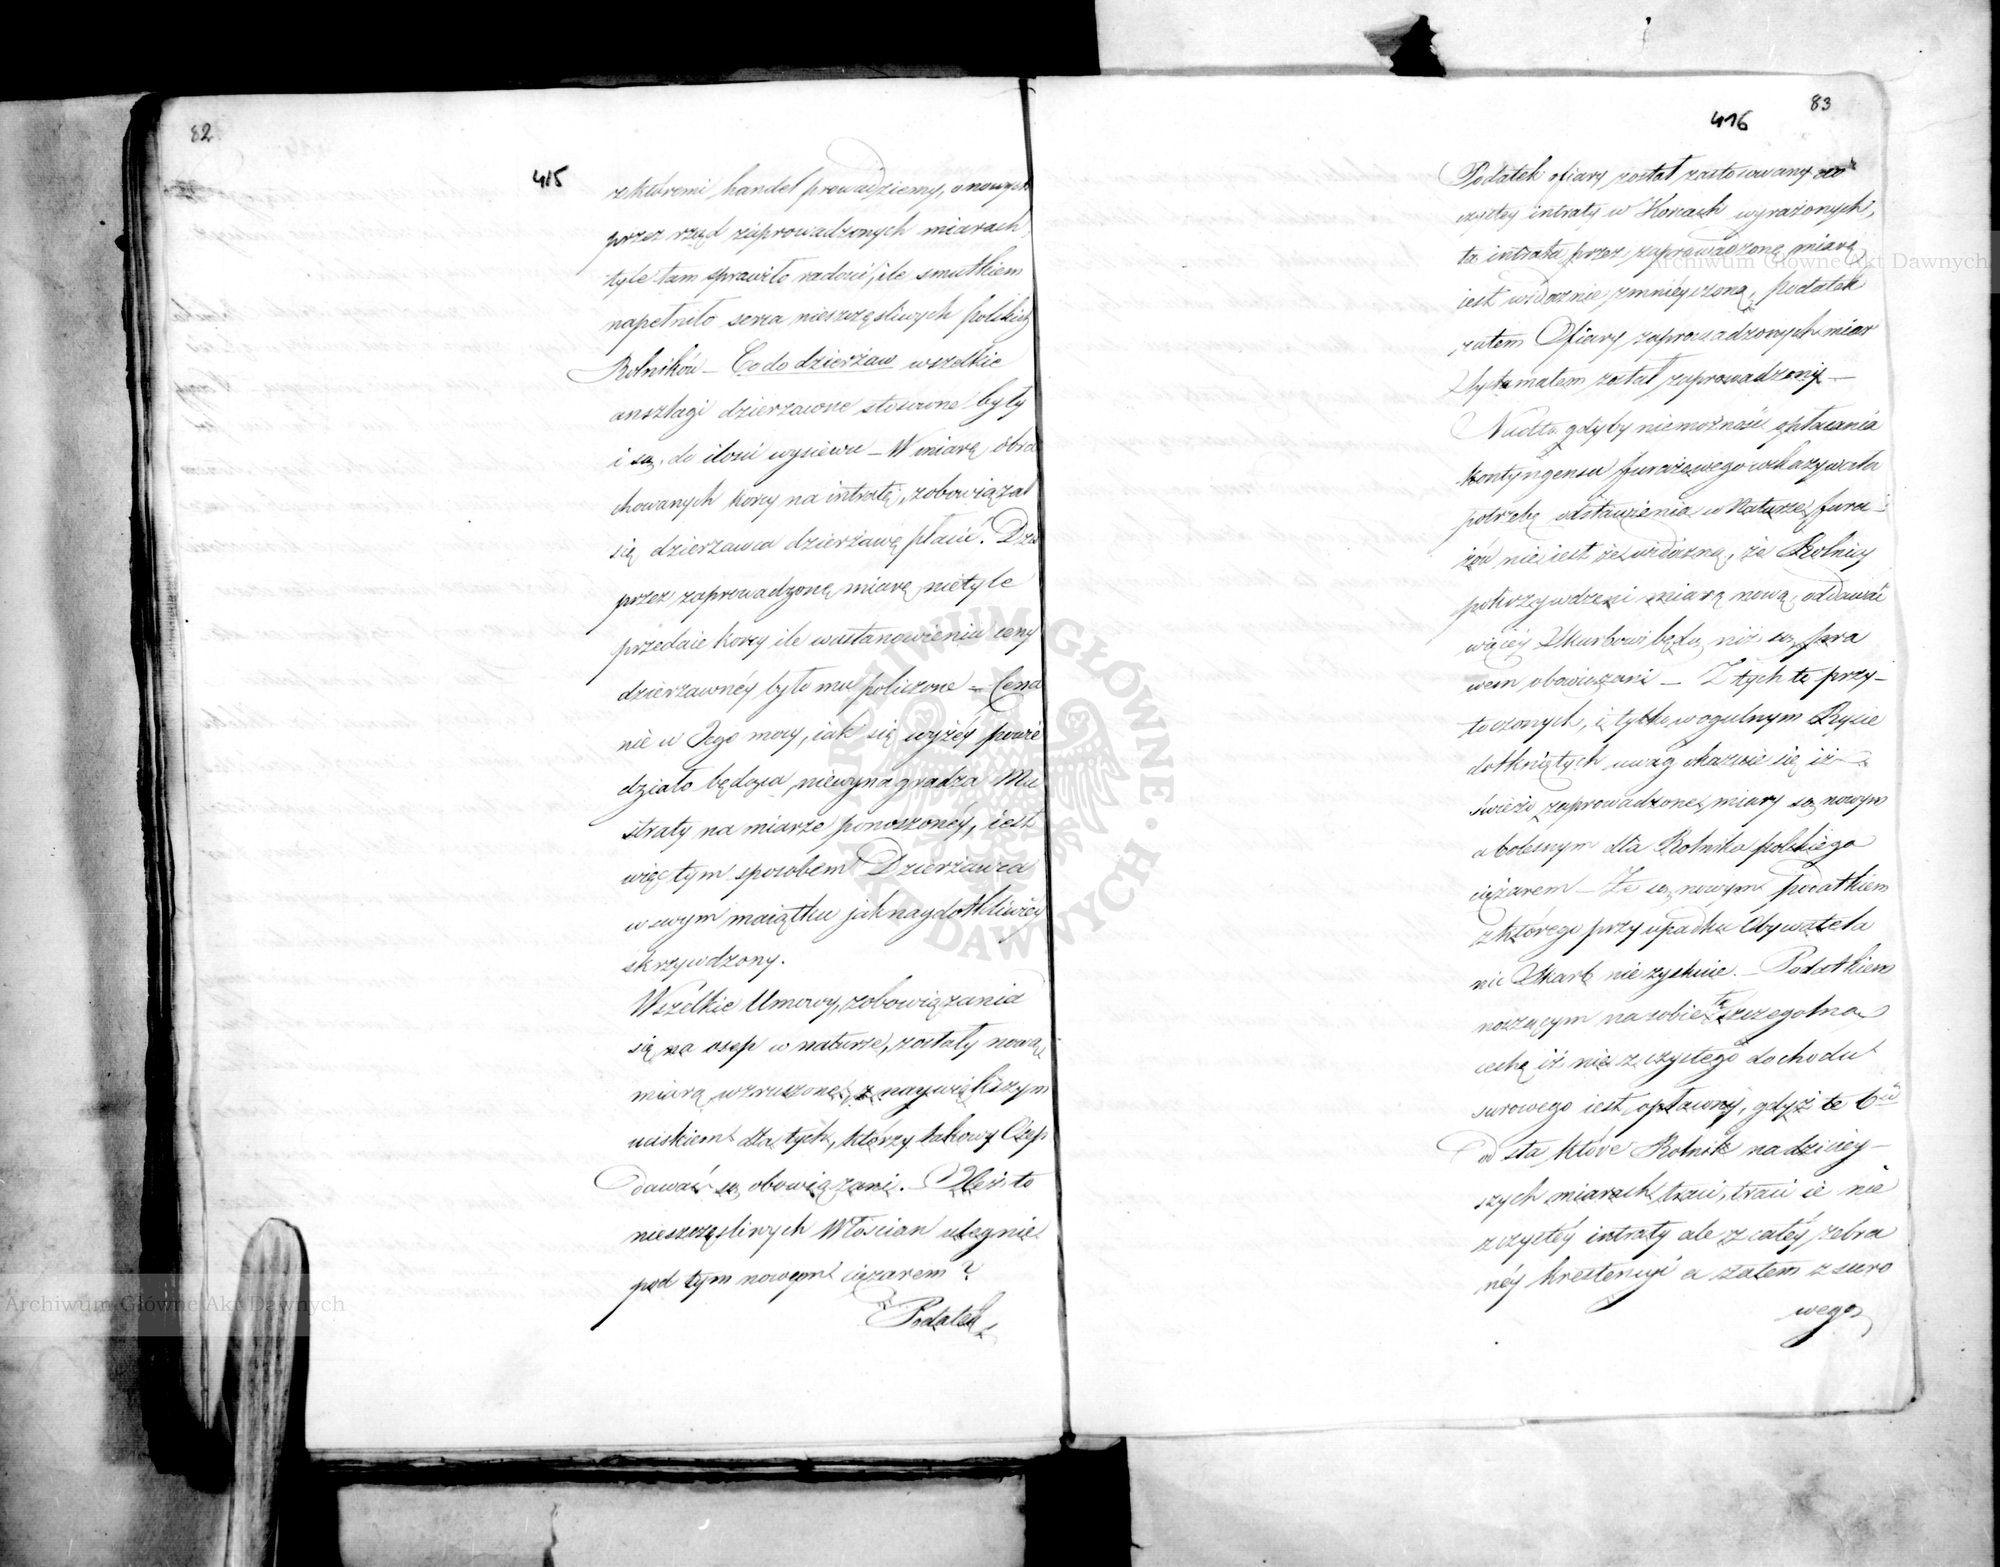 82
415
z któremi handel prowadziemy, o nowych
przez rząd zaprowadzonych miarach,
tyle tam sprawiło radości, ile smutkiem
napełniło serca nieszczęsliwych polskich
Rolników – Co do dzierżaw wszelkie
anszlagi dzierzawne stosowne były
i są, do ilosci wysiewu – W miarę obra
chowanych korcy na intratę, zobowiązał
się dzierzawca dzierżawę płacić. Dziś
przez zaprowadzoną miarę nietyle
przedaie korcy ile w ustanowieniu ceny
dzierzawnéy było mu policzone – Cena
nie w Jego mocy, iak się wyżéy powie
działo będąca, niewynagradza Mu
straty na miarze ponoszonéy, iest
więc tym sposobem Dzierżawca
w swym maiątku jak naydotkliwiéy
skrzywdzony.
Wszelkie Umowy, zobowiązania
się na osep w naturze, zostały nową
miarą wzruszone, z naywiększym
uciskiem dla tych, którzy takowy Osep
dawać są obowiązani. – Ileż to
nieszczęsliwych Włoscian ulegnie
pod tym nowym ciężarem ?
Podatek
83
416
Podatek ofiary został zastosowany do
czystey intraty w Korcach wyrażonych,
ta intrata przez zaprowadzoną miarę
iest widocznie zmnieyszoną, podatek
zatem Ofiary zaprowadzonych miar
Systematem został zaprowadzony –
Nadto gdyby niemożność opłacania
kontyngensu furażowego wskazywała
potrzebę odstawienia w Naturze fura
żów nie iest że widoczną, że Rolnicy
pokrzywdzeni miarą nową, oddawać
więcéy Skarbowi będą niż są pra
wem obowiązani – Z tych tu przy–
toczonych, i tylko w ogulnym Rysie
dotkniętych uwag okazuie się iż
swieżo zaprowadzone miary są nowym
a bolesnym dla Rolnika polskiego
ciężarem – Że są nowym podatkiem
z którego przy upadku Obywatela
nic Skarb nie zyskuie. – Podatkiem
noszącym na sobie tę szczegolną
cechę iż nie z czystego dochodu
surowego iest opłacony, gdyż te 6
od sta które Rolnik na dzisiey–
szych miarach traci, traci ie nie
z czystéy intraty ale z całéy zebra
néy krestencyi a zatem z suro
wego
ARCHIWUM GŁÓWNE AKT DAWNYCH
Archiwum Główne Akt Dawnych
Archiwum Główne Akt Dawnych